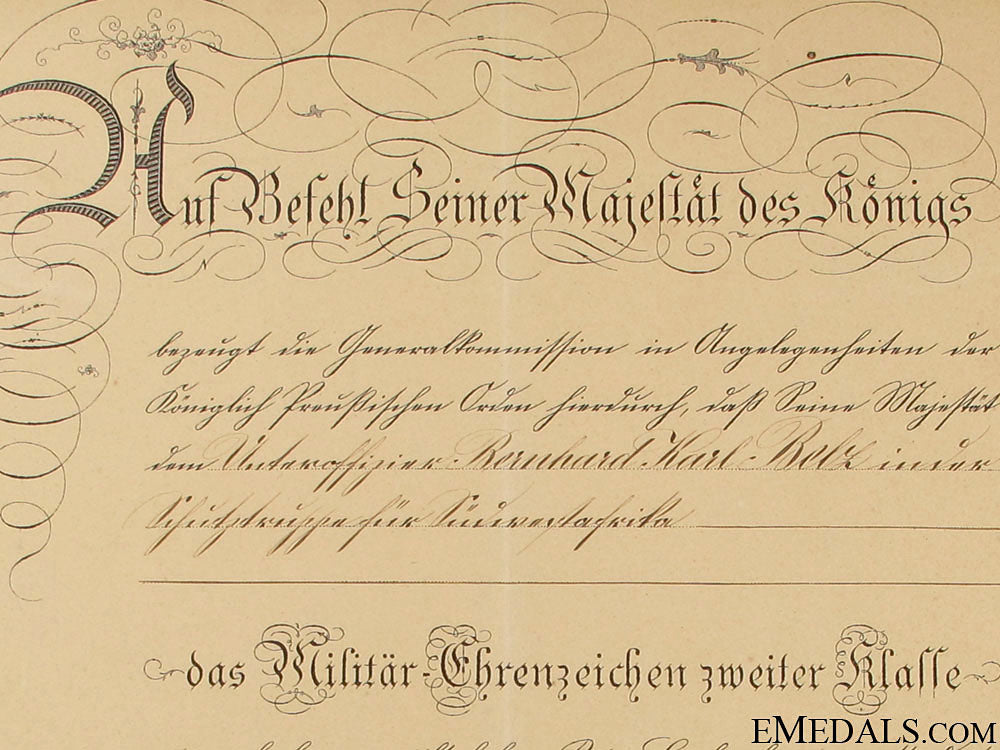 Auf Befehl Seiner Majestät des Königs
bezeugt die Generalkommission in Angelegenheiten der
Königlich Preußischen Orden hierdurch, daß Seine Majestät
dem Unteroffizier Bernhard Karl Bolz in der
Schutztruppe für Südwestafrika
das Militär-Ehrenzeichen zweiter Klasse
EMEDALS.COM